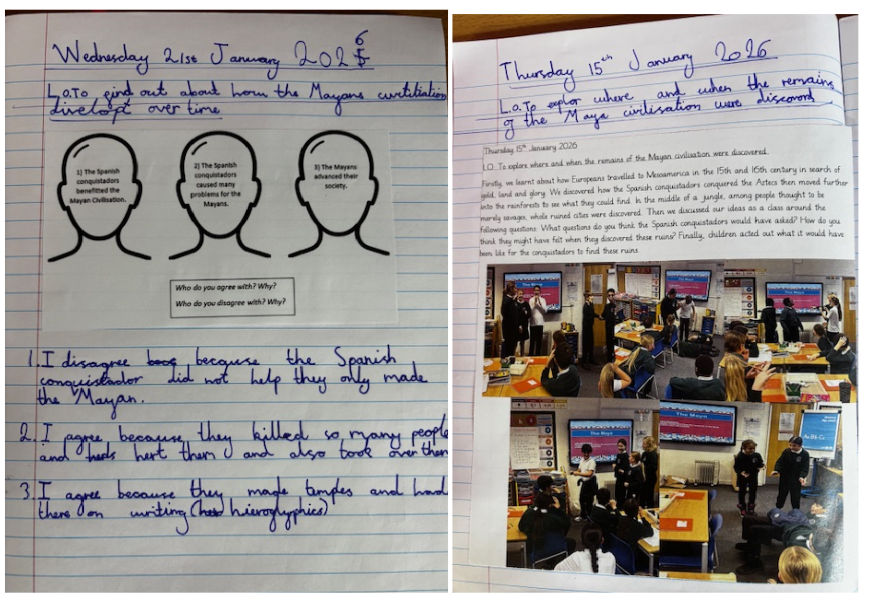 Wednesday 21st January 2026
L.O. To find out about how the Mayans curtiliation
divelopt over time
1) The Spanish
conquistadors
benefitted the
Mayan Civilisation.
2) The Spanish
conquistadors
caused many
problems for the
Mayans.
3) The Mayans
advanced their
society.
Who do you agree with? Why?
Who do you disagree with? Why?
1. I disagree because the Spanish
conquistador did not help they only made
the Mayan.
2. I agree because they killed so many people
and hert them and also took over them
3. I agree because they made temples and had
there on writing (hieroglyphics)
Thursday 15th January 2026
L.O. To explor where and when the remains
of the Maya civilisation were discovord
Thursday 15th January 2026
L.O. To explore where and when the remains of the Mayan civilisation were discovered.
Firstly, we learnt about how Europeans travelled to Mesoamerica in the 15th and 16th century in search of
gold, land and glory. We discovered how the Spanish conquistadors conquered the Aztecs then moved further
into the rainforests to see what they could find. In the middle of a jungle, among people thought to be
merely savages, whole ruined cities were discovered. Then we discussed our ideas as a class around the
following questions. What questions do you think the Spanish conquistadors would have asked? How do you
think they might have felt when they discovered these ruins? Finally, children acted out what it would have
been like for the conquistadors to find these ruins.
The Maya